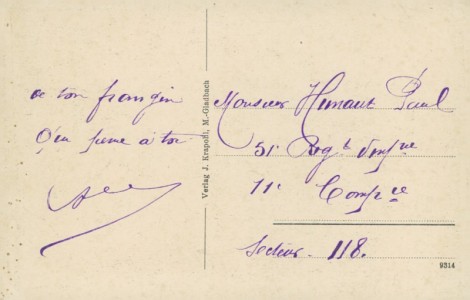 de ton frangin
qui pense à toi
Verlag J. Krapohl, M.-Gladbach
Monsieur Hunaut Paul
51e Regt d'infie
11e Compie
Secteur 118.
9314